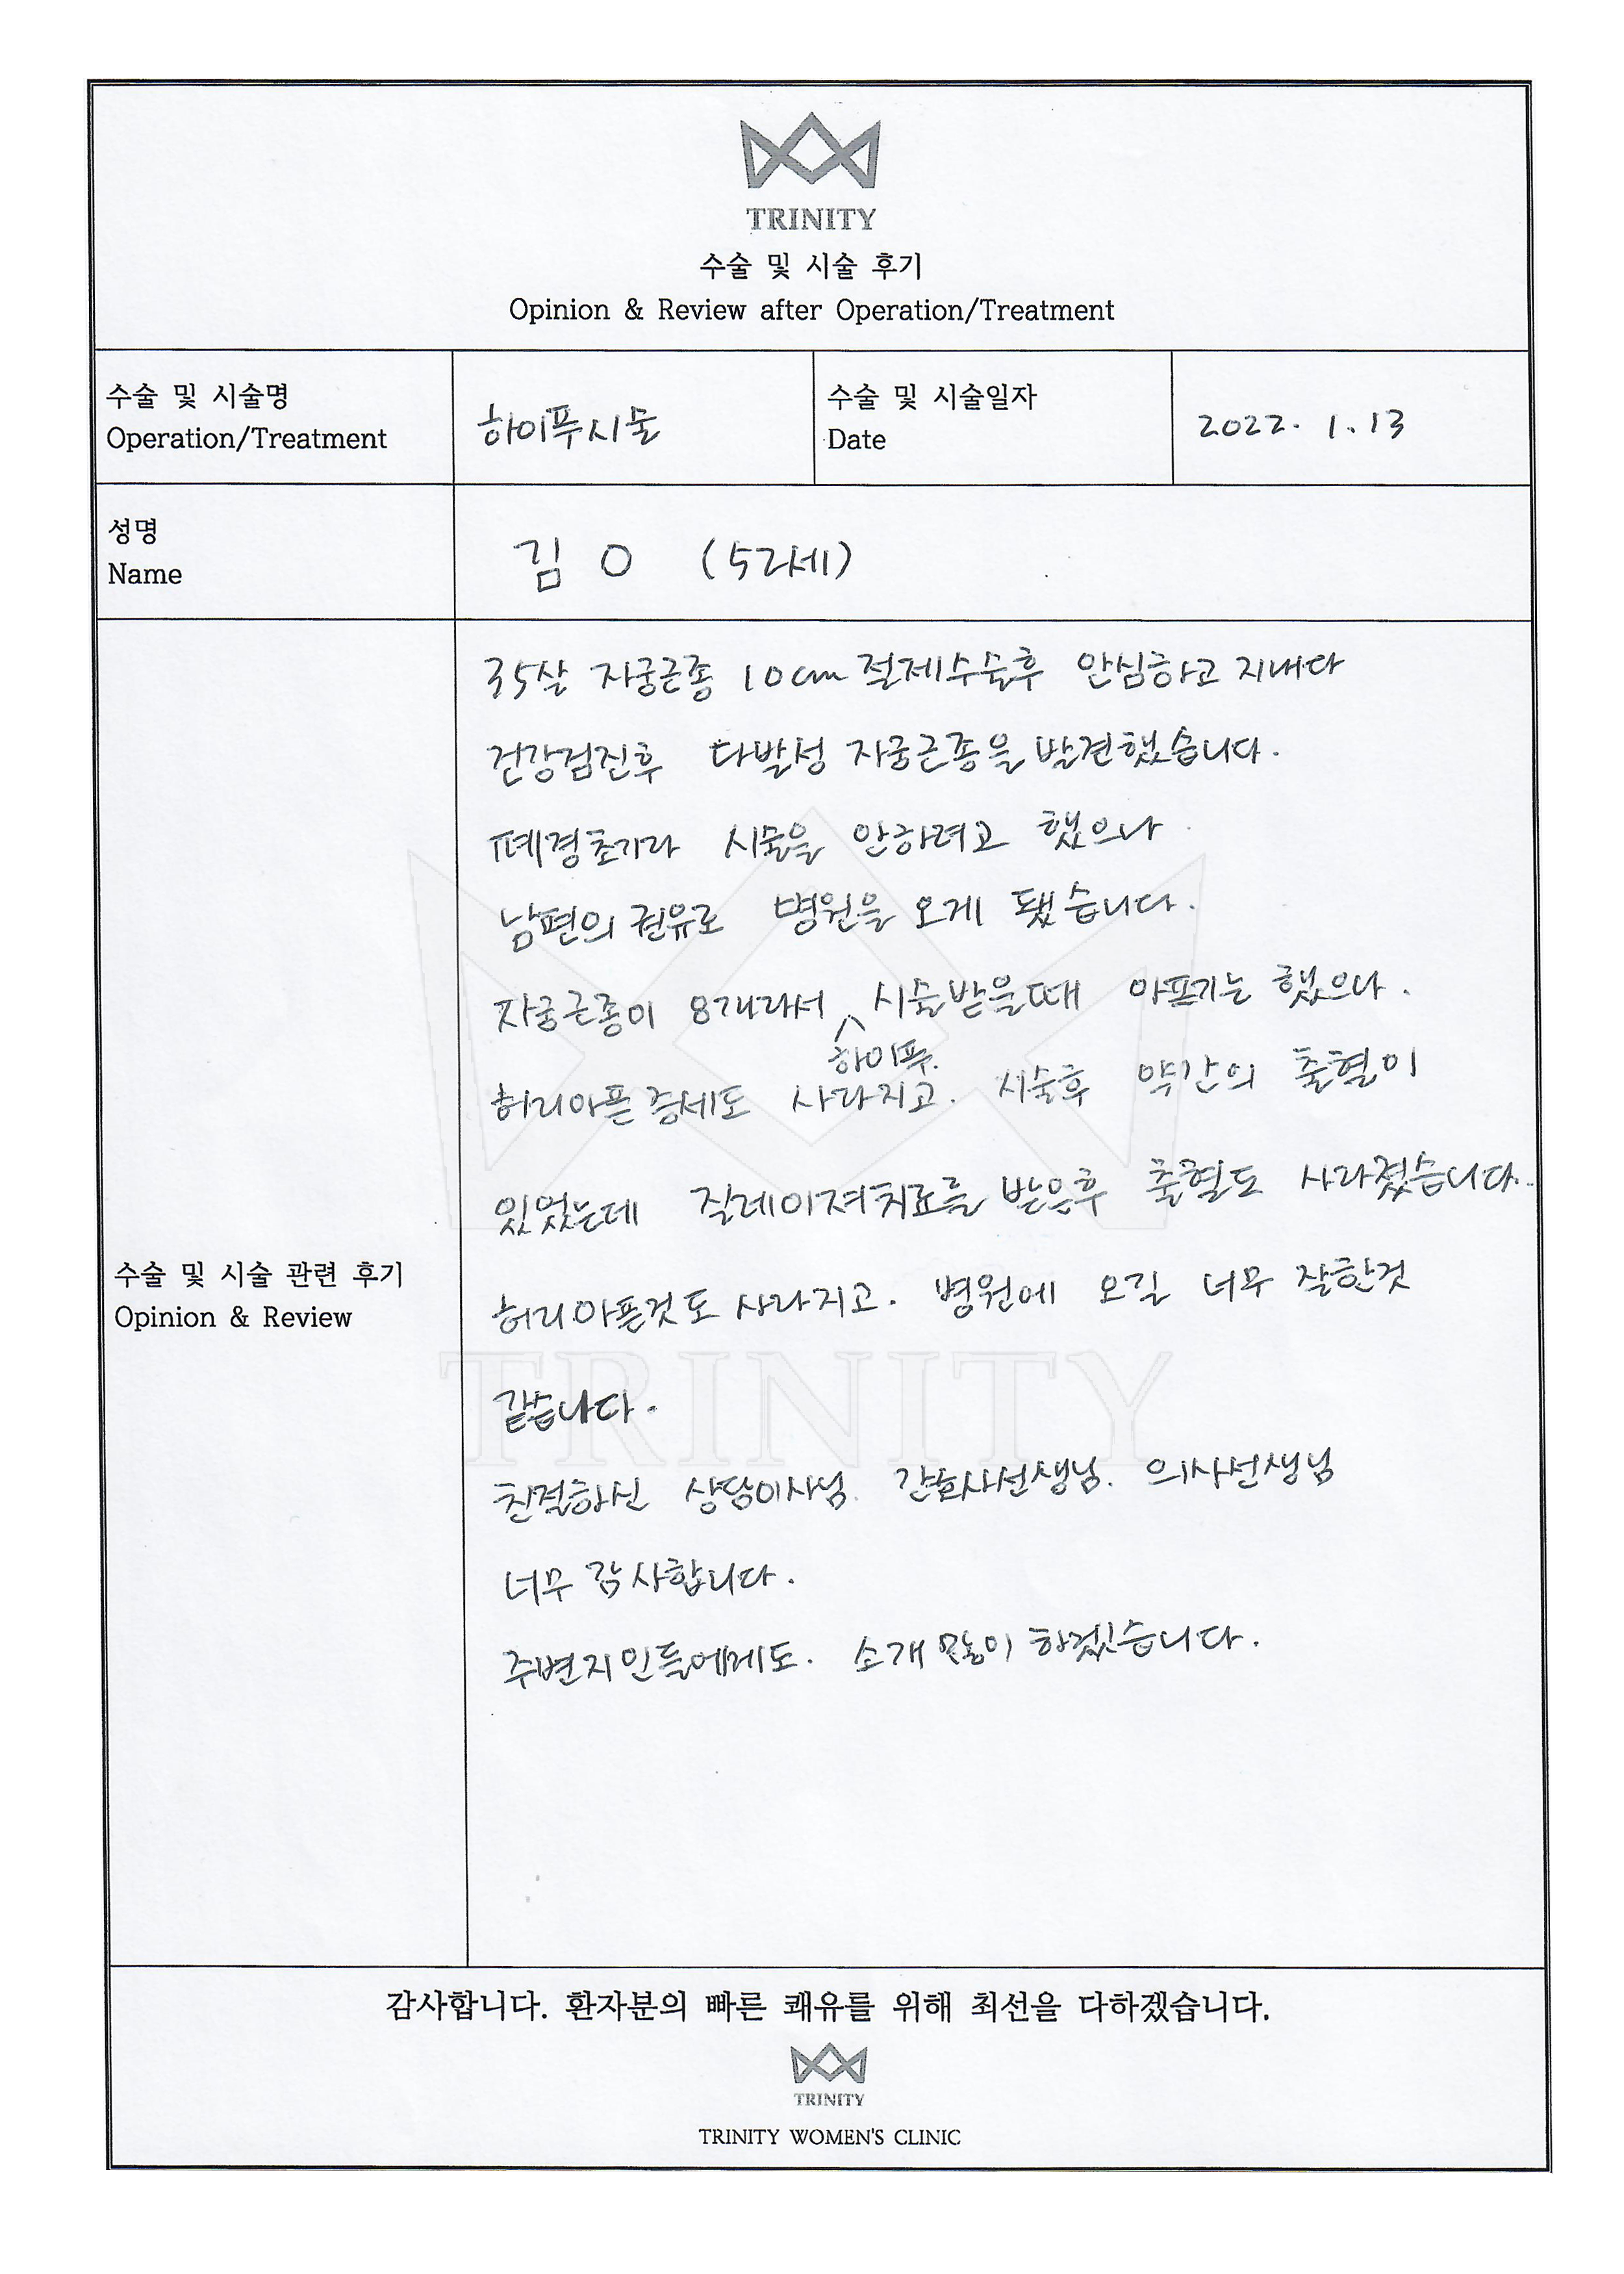 TRINITY
수술 및 시술 후기
Opinion & Review after Operation/Treatment
수술 및 시술명
Operation/Treatment
하이푸시술
수술 및 시술일자
Date
2022. 1. 13
성명
Name
김 O (52세)
수술 및 시술 관련 후기
Opinion & Review
35살 자궁근종 10cm 절제수술후 안심하고 지내다
건강검진후 다발성 자궁근종을 발견했습니다.
폐경초기라 시술을 안하려고 했으나
남편의 권유로 병원을 오게 됐습니다.
자궁근종이 8개라서 하이푸. 시술받을때 아프기는 했으나.
허리아픈 증세도 사라지고. 시술후 약간의 출혈이
있었는데 질레이져치료를 받은후 출혈도 사라졌습니다.
허리아픈것도 사라지고. 병원에 오길 너무 잘한것
같습니다.
친절하신 상담이사님. 간호사선생님. 의사선생님
너무 감사합니다.
주변지인들에게도. 소개 많이 하겠습니다.
TRINITY
감사합니다. 환자분의 빠른 쾌유를 위해 최선을 다하겠습니다.
TRINITY
TRINITY WOMEN'S CLINIC